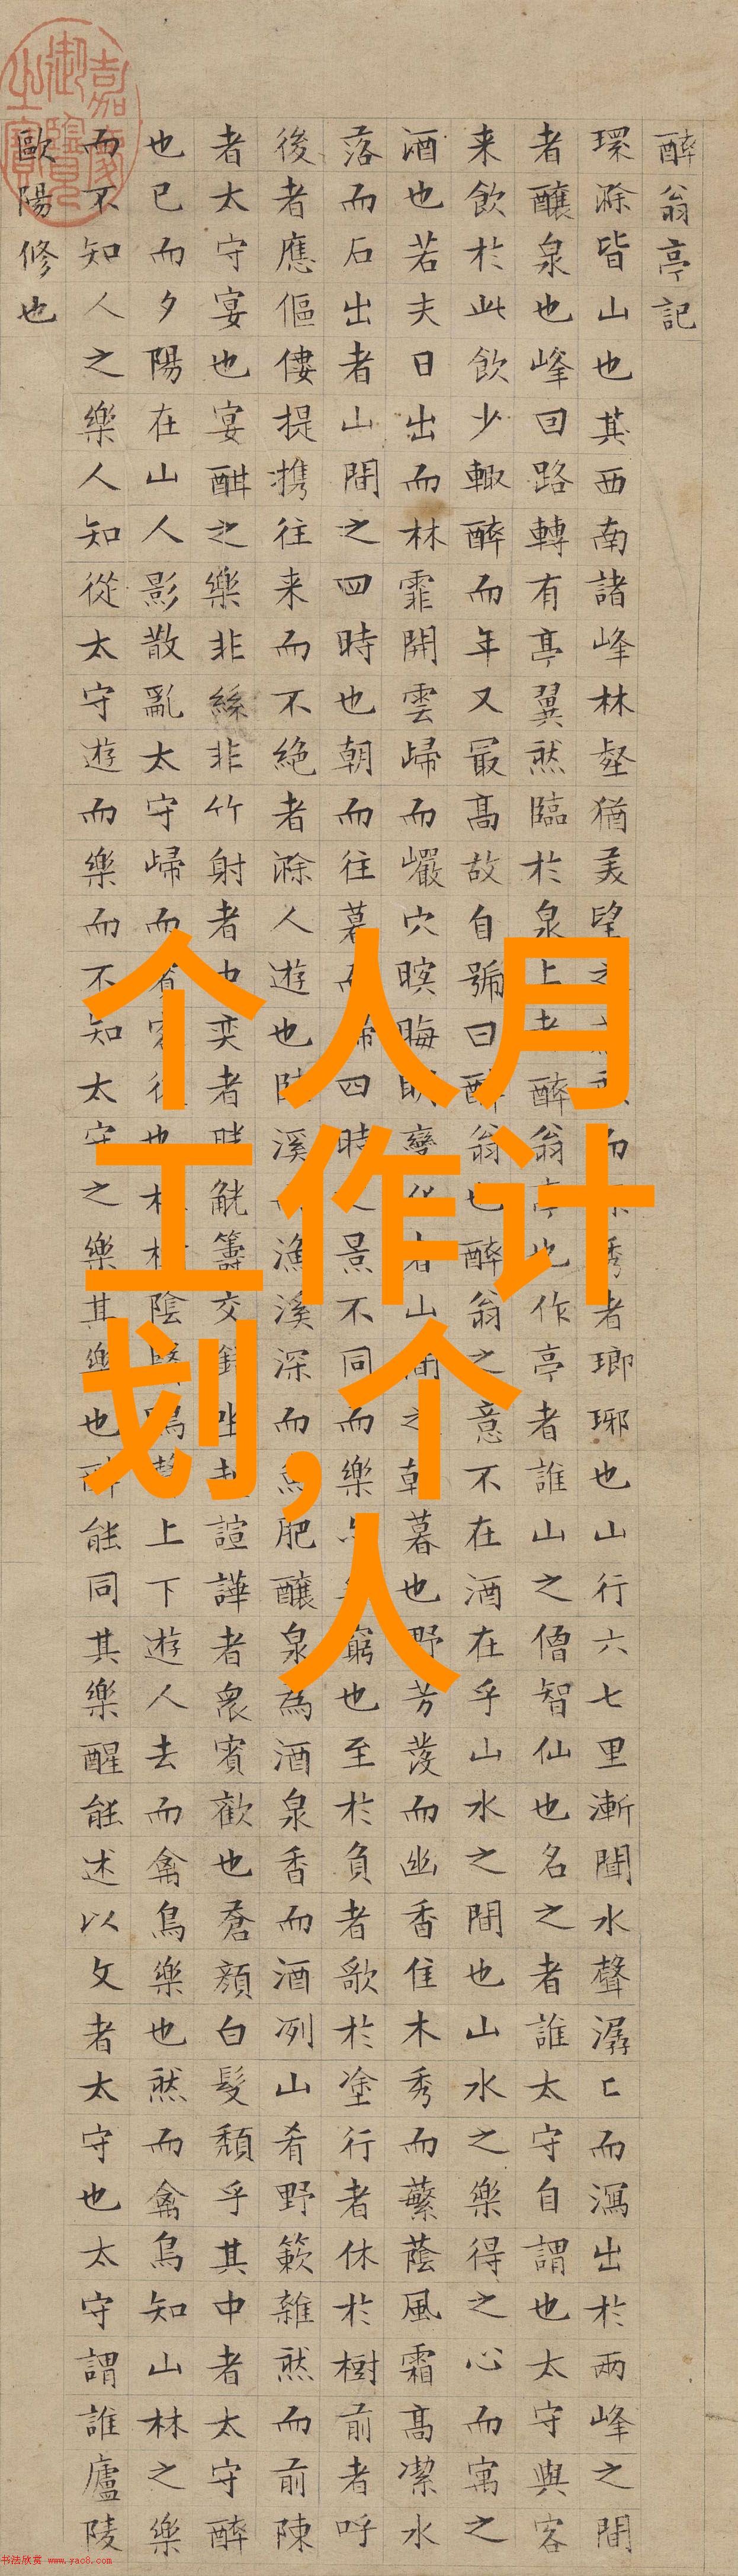 醉翁亭記
環滁皆山也其西南諸峰林壑猶美望之而深秀者瑯琊也山行六七里漸聞水聲潺匕而瀉出於兩峰之間
者醸泉也峰回路轉有亭翼然臨於泉上者醉翁亭也作亭者誰山之僧智仙也名之者誰太守自謂也太守與客
来飲於此飲少輙醉而年又最高故自號曰醉翁也醉翁之意不在酒在乎山水之間也山水之樂得之心而寓之
酒也若夫日出而林霏開雲歸而巖穴暝晦明變化者山間之朝暮也野芳發而幽香佳木秀而蘩蔭風霜高潔水
落而石出者山間之四時也朝而往暮而歸四時之景不同而樂亦無窮也至於負者歌於塗行者休於樹前者呼
後者應傴僂提携往来而不絶者滁人遊也臨溪而漁溪深而魚肥醸泉為酒泉香而酒冽山肴野簌雜然而前陳
者太守宴也宴酣之樂非絲非竹射者中奕者勝觥籌交錯坐起諠譁者衆賓歡也蒼顔白髮頹乎其中者太守醉
也已而夕陽在山人影散亂太守歸而賓客從也樹林陰翳鳴聲上下遊人去而禽鳥樂也然而禽鳥知山林之樂
而不知人之樂人知從太守遊而樂而不知太守之樂其樂也醉能同其樂醒能述以文者太守也太守謂誰廬陵
歐陽修也
嘉慶御覽之寶
个人月
工作计
划,个
人
书法欣赏 www.yac8.com